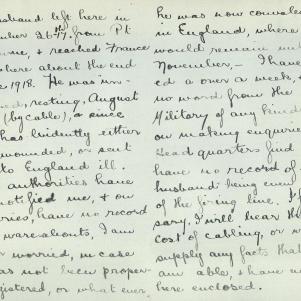 sband left here in
mber 26th. from Pt
me, & reached France
here about the end
e 1918. He was un-
ed, resting, August
(by cable), & since
has evidently either
wounded, or sent
to England ill.
authorities have
notified me, & on
ries, have no record
whereabouts, I am
worried, in case
as not been proper-
gistered, or what ever
he was now convales
in England, where
would remain unt
November,- I have
ed a over a week, &
no word from the
Military of any kind
on making enquirie
Head quarters find
have no record of
husband being even
of the firing line. If
sary, I will bear th
cost of cabling, or w
supply any facts that
am able, I have w
here enclosed.